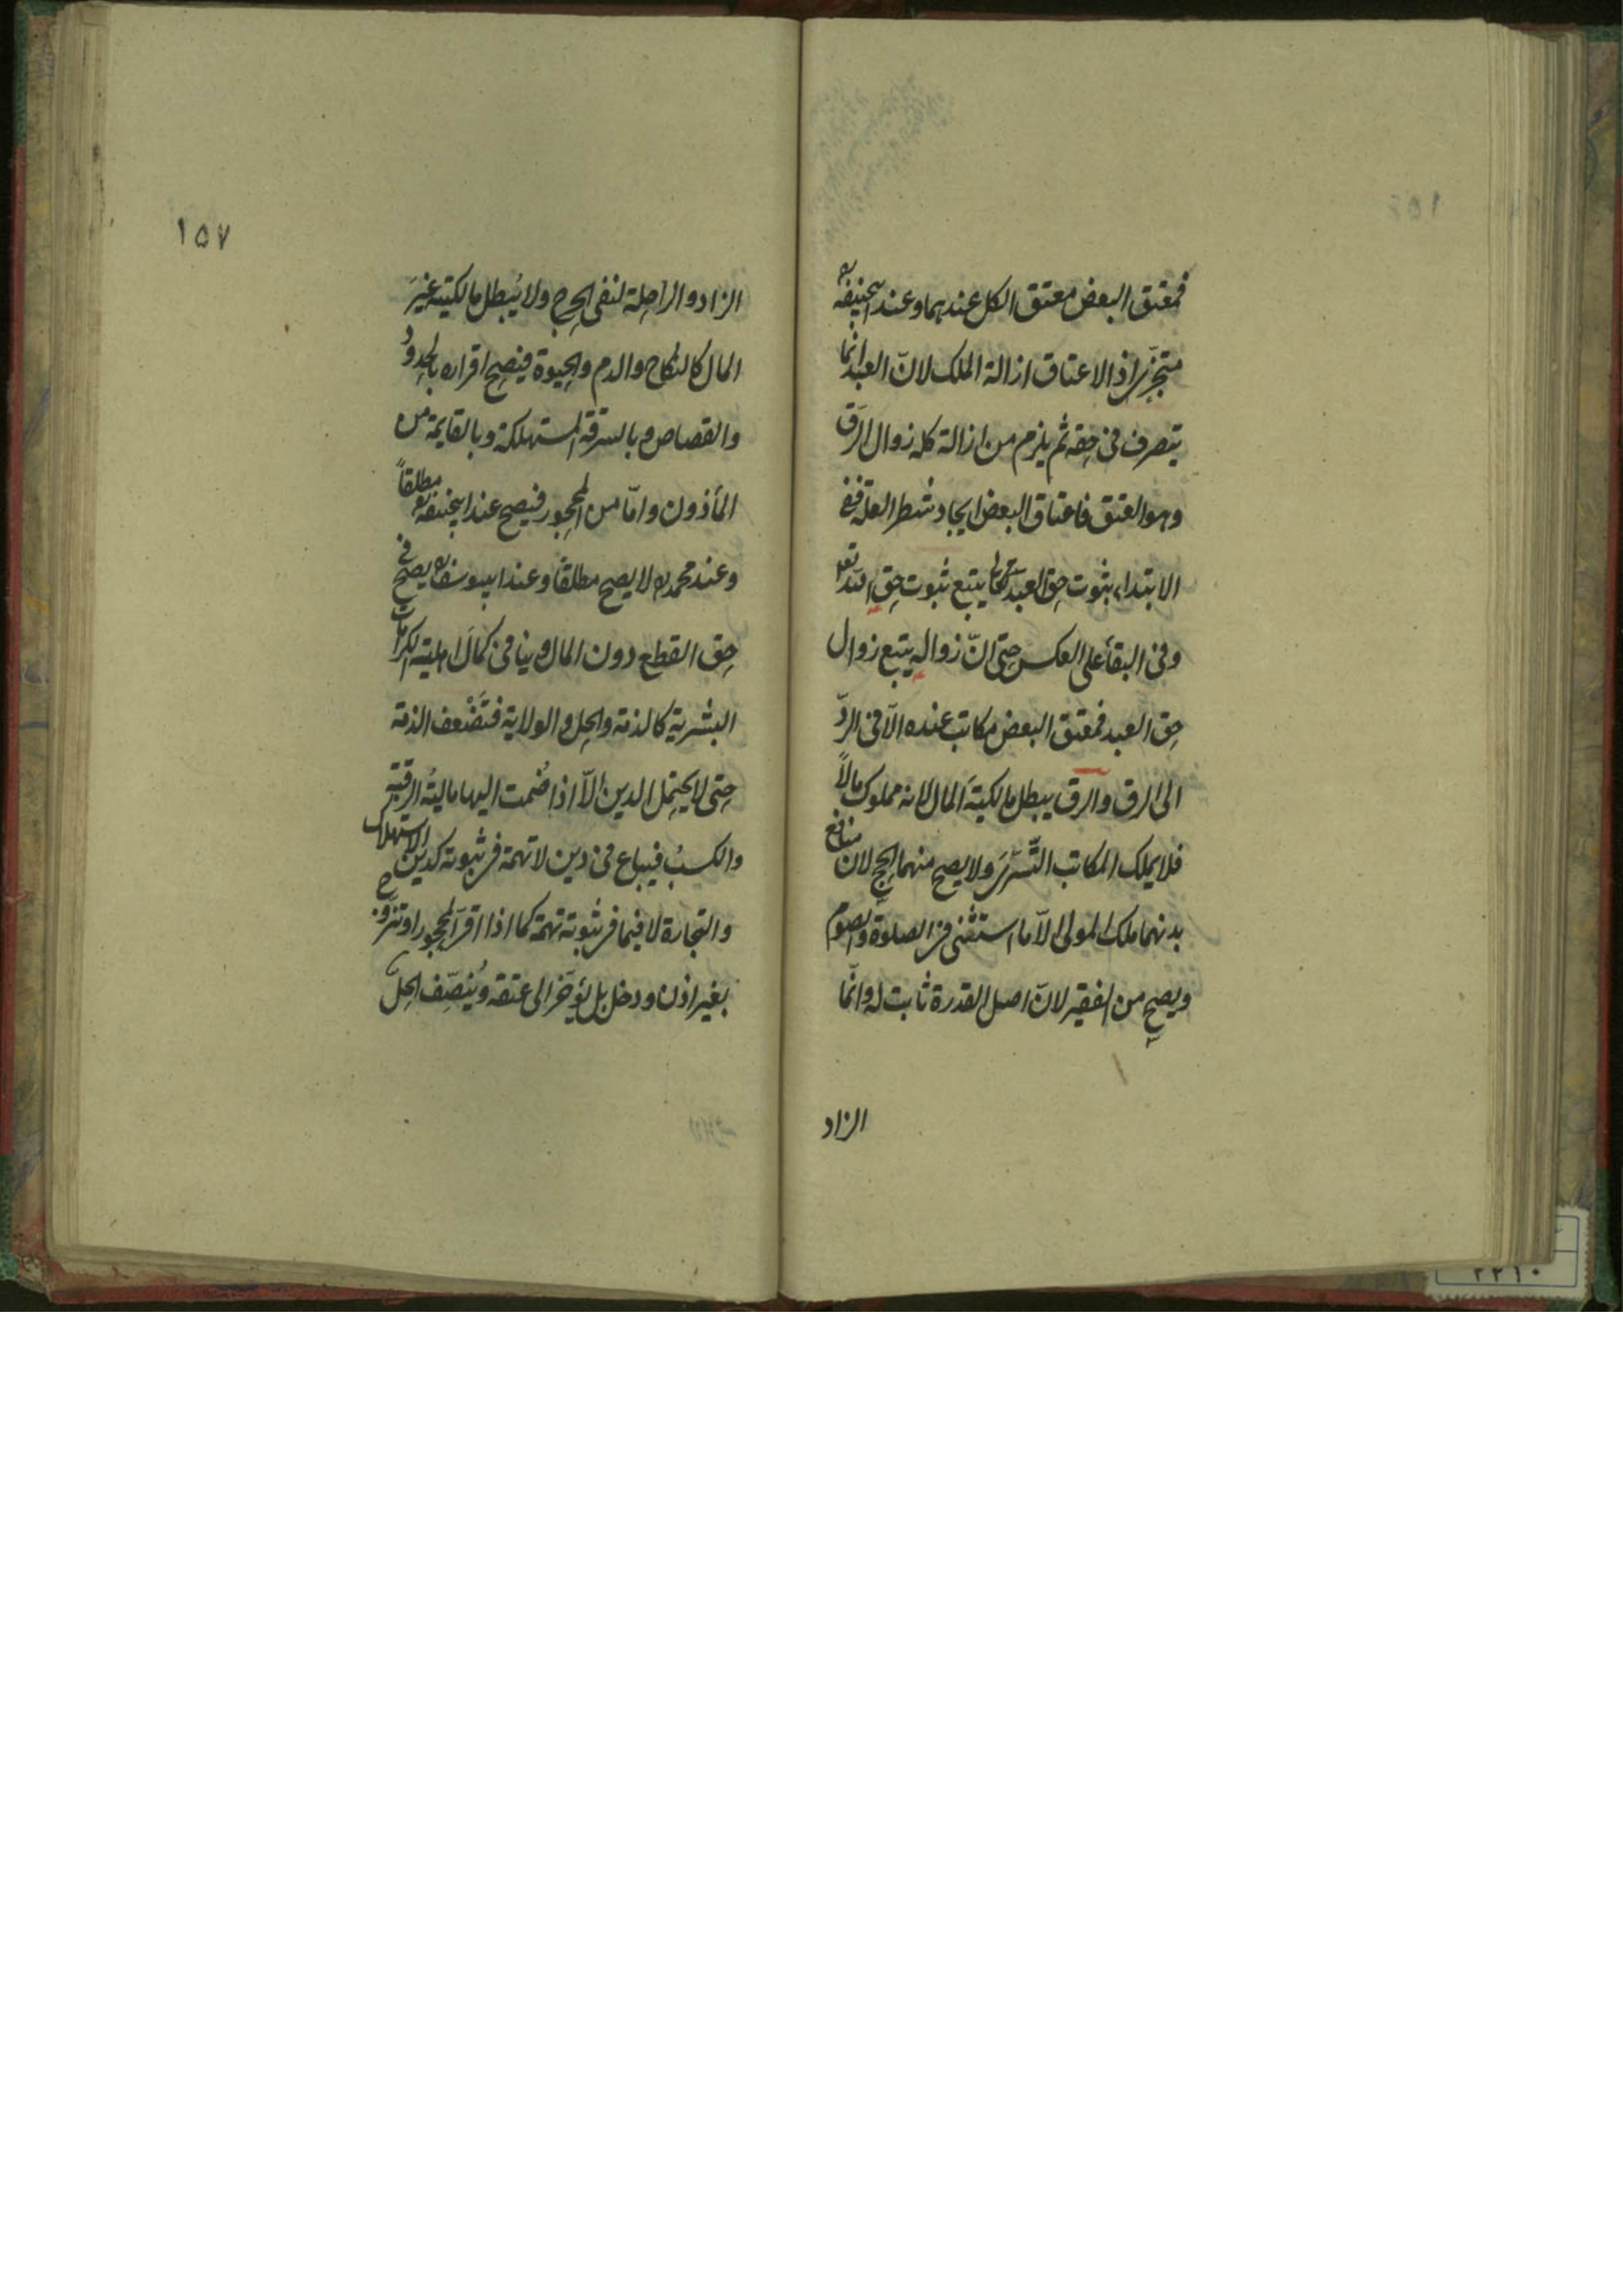 فمعتق البعض معتق الكل عندهما وعند ابيحنيفه ره
متجزّ اذ الاعتاق ازالة الملك لانّ العبد انما
يتصرف فى حقه ثم يلزم من ازالة كله زوال الرق
وهو العتق فاعتاق البعض ايجاد شطر العلة ففى
الابتداء ثبوت حق العبد يتبع ثبوت حق الله تعا
وفى البقأ على العكس حتى انّ زواله يتبع زوال
حق العبد فمعتق البعض مكاتب عنده الاّ فى الردّ
الى الرق والرق يبطل مالكيّة المال لانه مملوك مالاً
فلا يملك المكاتب التّسرّى ولا يصح منهما الحج لان منافع
بدنهما ملك المولى الاّ ما استثنى من الصلوة والصوم
ويصح من الفقير لانّ اصل القدرة ثابت له وانّما
الزاد
١٥٧
الزاد والراحلة لنفى الحرج ولا يُبطل مالكيته غيرَ
المال كالنكاح والدم والحيوة فيصح اقراره بالحدودِ
والقصاص وبالسرقة المستهلكة وبالقايمة من
المأذون وامّا من المحجور فيصح عند ابيحنيفه ره مطلقاً
وعند محمد ره لا يصح مطلقا وعند ابيوسف ره يصح فى
حق القطع دون المال وينافى كمالَ اهلية الكرامات
البشرية كالذمة والحل والولاية فتَضْعف الذمة
حتى لا يحتمل الدين الاّ اذا ضُمت اليها ماليةُ الرقبة
والكسبُ فيباع فى دين لا تهمة فى ثبوته كدين الاستهلاك
والتجارة لا فيما فى ثبوته تهمة كما اذا اقرّ المحجور او تزوج
بغير اذن ودخل بل يؤخّر الى عتقه ويُنصّف الحلّ
٢٢١٠